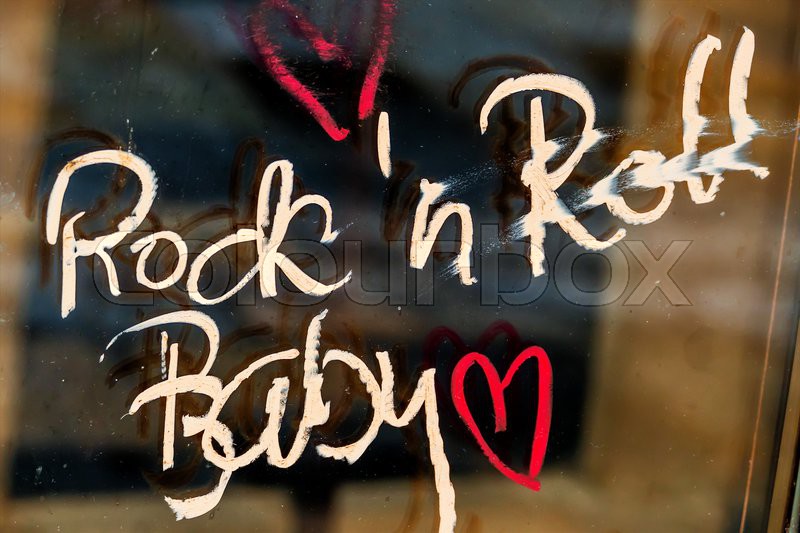 Rock 'n Roll
Baby
colourbox